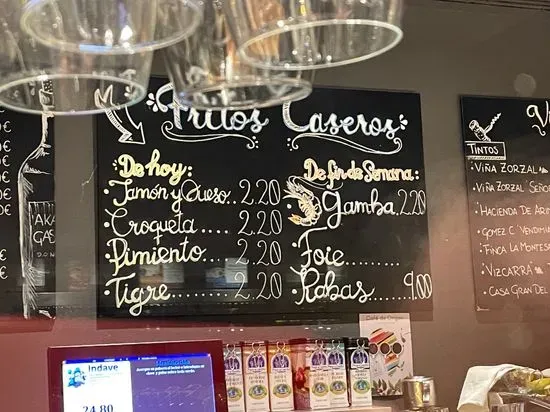 Fritos Caseros
De hoy:
Jamón y Queso.. 2.20
Croqueta...... 2.20
Pimiento..... 2.20
Tigre....... 2.20
De fin de Semana:
Gamba 2.20
Foie.......
Rabas....... 9.00
TINTOS
• VIÑA ZORZAL
• VIÑA ZORZAL SEÑO
• HACIENDA DE AR
• GOMEZ C VENDIMI
FINCA LA MONTES
• VIZCARRA
• CASA GRAN DEL
Indave
24,80